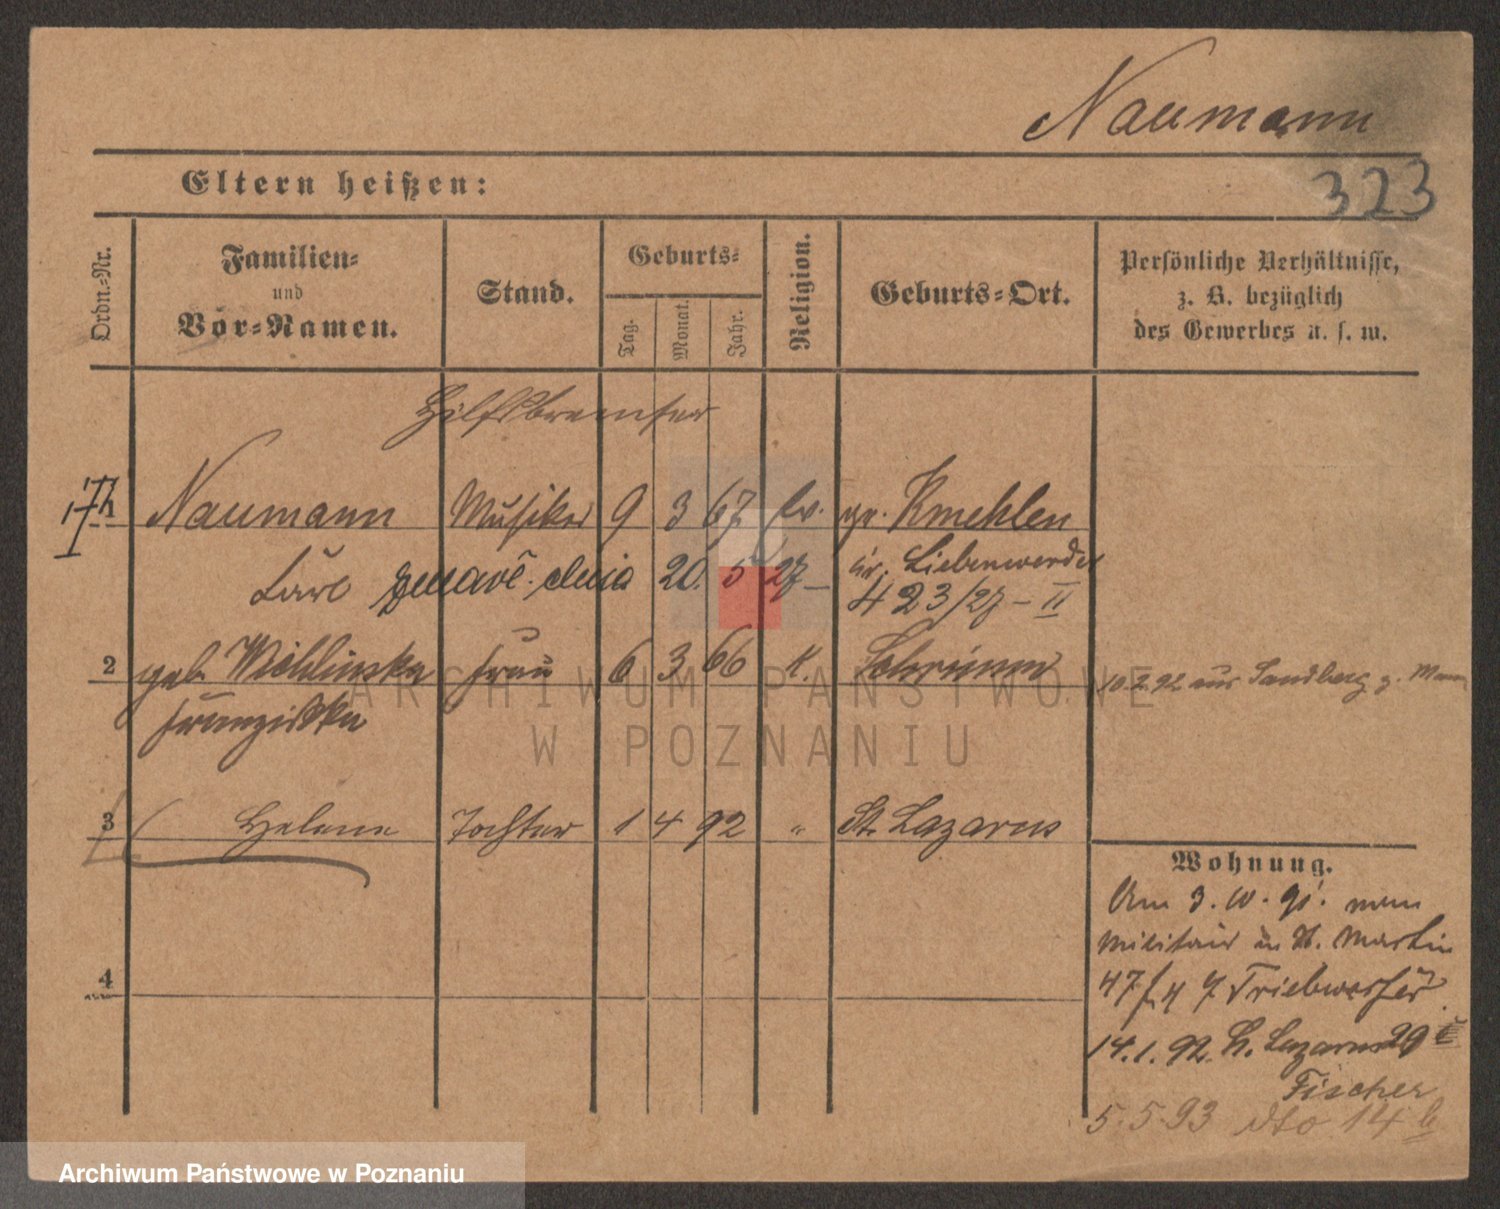 Naumann
323
Eltern heißen:
Ordn.-Nr.
Familien-
und
Vor-Namen.
Stand.
Geburts-
Tag.
Monat.
Jahr.
Religion.
Geburts-Ort.
Persönliche Verhältnisse,
z. B. bezüglich
des Gewerbes u. s. w.
Hilfsbremser
1 Naumann Musiker 9 3 67 Ev. gr. Kmehlen
Karl 20. 5 27 – Kr. Liebenwerda
423/27 – II
2 geb. Wichlinska Frau 6 3 66 K. Schrimm 10.2.92 aus Sandberg z. Mann
Franziska
3 Helene Tochter 1 4 92 " St. Lazarus
Wohnung.
Am 3. 10. 91. vom
Militair in St. Martin
47/
14.1.92. St. Lazarus 29
Fischer
4
5.5.93 dto 14 b
ARCHIWUM PAŃSTWOWE
W POZNANIU
Archiwum Państwowe w Poznaniu